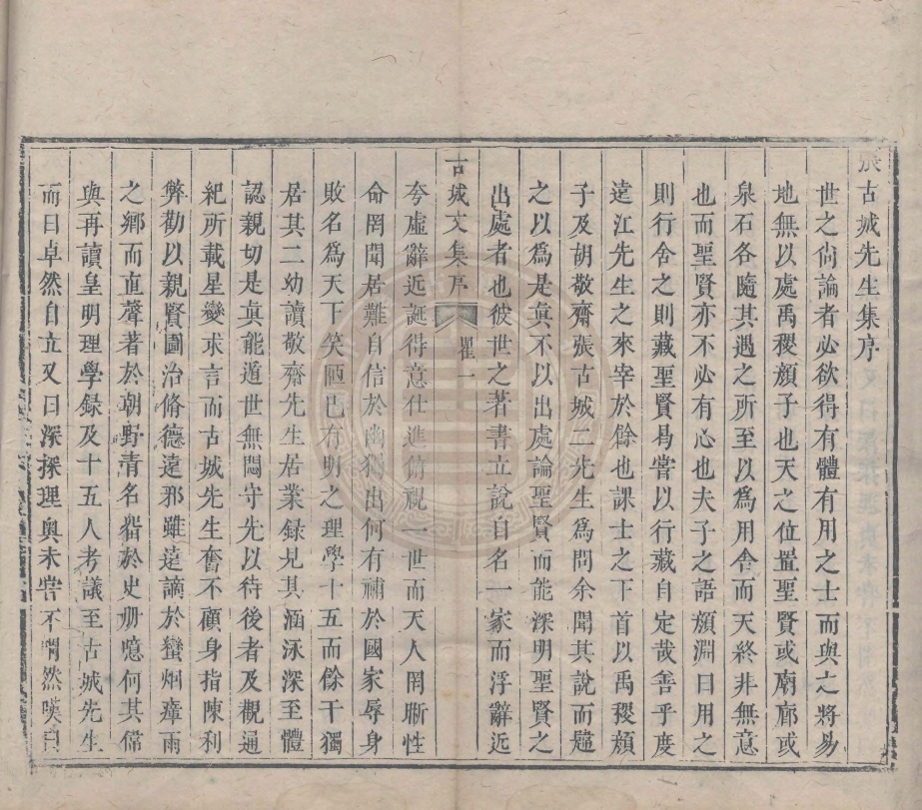 張古城先生集序
世之尙論者必欲得有體有用之士而與之將易
地無以處禹稷顏子也天之位置聖賢或廟廊或
泉石各隨其遇之所至以爲用舍而天終非無意
也而聖賢亦不必有心也夫子之語顏淵曰用之
則行舍之則藏聖賢曷嘗以行藏自定哉善乎度
逵江先生之來宰於餘也課士之下首以禹稷顏
子及胡敬齋張古城二先生爲問余聞其說而韙
之以爲是眞不以出處論聖賢而能深明聖賢之
出處者也彼世之著書立說自名一家而浮辭近
古城文集序 瞿一
夸虛辭近誕得意仕進俯視一世而天人罔晰性
命罔聞居難自信於幽獨出何有補於國家辱身
敗名爲天下笑陋巳有明之理學十五而餘干獨
居其二幼讀敬齊先生居業録見其涵泳深至體
認親切是眞能遁世無悶守先以待後者及觀通
紀所載星變求言而古城先生奮不顧身指陳利
弊勸以親賢圖治脩德遠邪雖遠謫於蠻烟瘴雨
之鄉而直聲著於朝野靑名豁於史册噫何其偉
與再讀皇明理學録及十五人考議至古城先生
而曰卓然自立又曰深探理奥未甞不喟然嘆曰